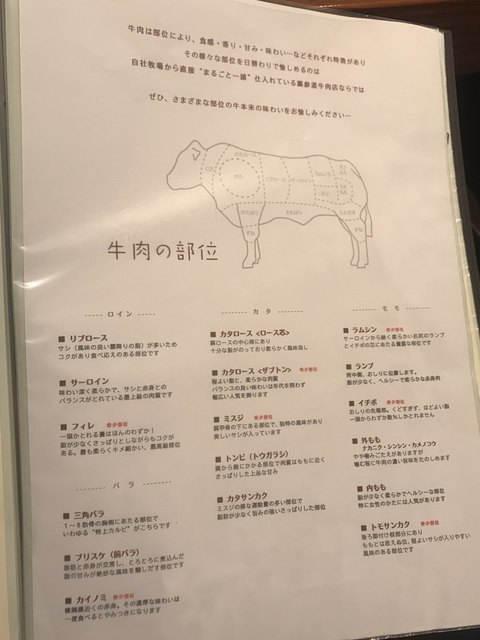 牛肉は部位により、食感・香り・甘み・味わい…などそれぞれ特徴があり
その様々な部位を日替わりで愉しめるのは
自社牧場から直接“まるごと一頭”仕入れている裏参道牛肉店ならでは
ぜひ、さまざまな部位の牛本来の味わいをお愉しみください…
かたロース
かた
リブロース
サーロイン
かたばら
ともばら
すね
牛肉の部位
ロイン
■ リブロース
サシ（風味の良い霜降りの脂）が多いため
コクがあり食べ応えのある部位です
■ サーロイン
味わい深く柔らかで、サシと赤身との
バランスがとれている最上級の肉質です
■ フィレ 希少部位
一頭かとれる量はほんのわずか！
脂が少なくさっぱりとしながらもコクが
ある。最も柔らくキメ細かい、最高級部位
バラ
■ 三角バラ
1～6肋骨の胸側にあたる部位で
いわゆる“特上カルビ”がこちらです
■ ブリスケ（前バラ）
脂肪と赤身が交差し、とろとろに煮込んだ
脂の甘みが絶妙な風味を醸しだす部位です
■ カイノミ 希少部位
横隔膜近くの赤身。その濃厚な味わいは
一度食べるとやみつきになります
カタ
■ カタロース <ロース芯>
肩ロースの中心部にあり
十分な脂がのっており柔らかく風味良し
■ カタロース <ザブトン> 希少部位
程よい脂と、柔らかな肉質
バランスの良い味わいは年代を問わず
幅広い人気を誇ります
■ ミスジ 希少部位
肩甲骨の下にある部位で、独特の風味があり
美しいサシが入っています
■ トンビ（トウガラシ）
肩から腕にかかる部位で肉質はももに近く
さっぱりした上品な甘み
■ カタサンカク
ミスジの隣な運動量の多い部位で
脂肪が少なく旨みの強いさっぱりした部位
モモ
■ ラムシン 希少部位
サーロインから続く柔らかいお尻のランプ
とイチボの芯にあたる貴重な部位です
■ ランプ
背中側、おしりに位置します。
脂が少なく、ヘルシーで柔らかな赤身肉
■ イチボ 希少部位
おしりの先端部。くどすぎず、ほどよい脂
一頭からわずか数%しかとれません
■ 外もも
ナカニク・シンシン・カメノコウ
やや噛みごたえがありますが
噛む程に牛肉の濃い旨味をたのしめます
■ 内もも
脂が少なく柔らかでヘルシーな部位
特に女性のかたには人気があります
■ トモサンカク 希少部位
後ろ脚付け根部分にあり
ももとは思えぬ位、程よいサシが入りやすい
風味のある部位です